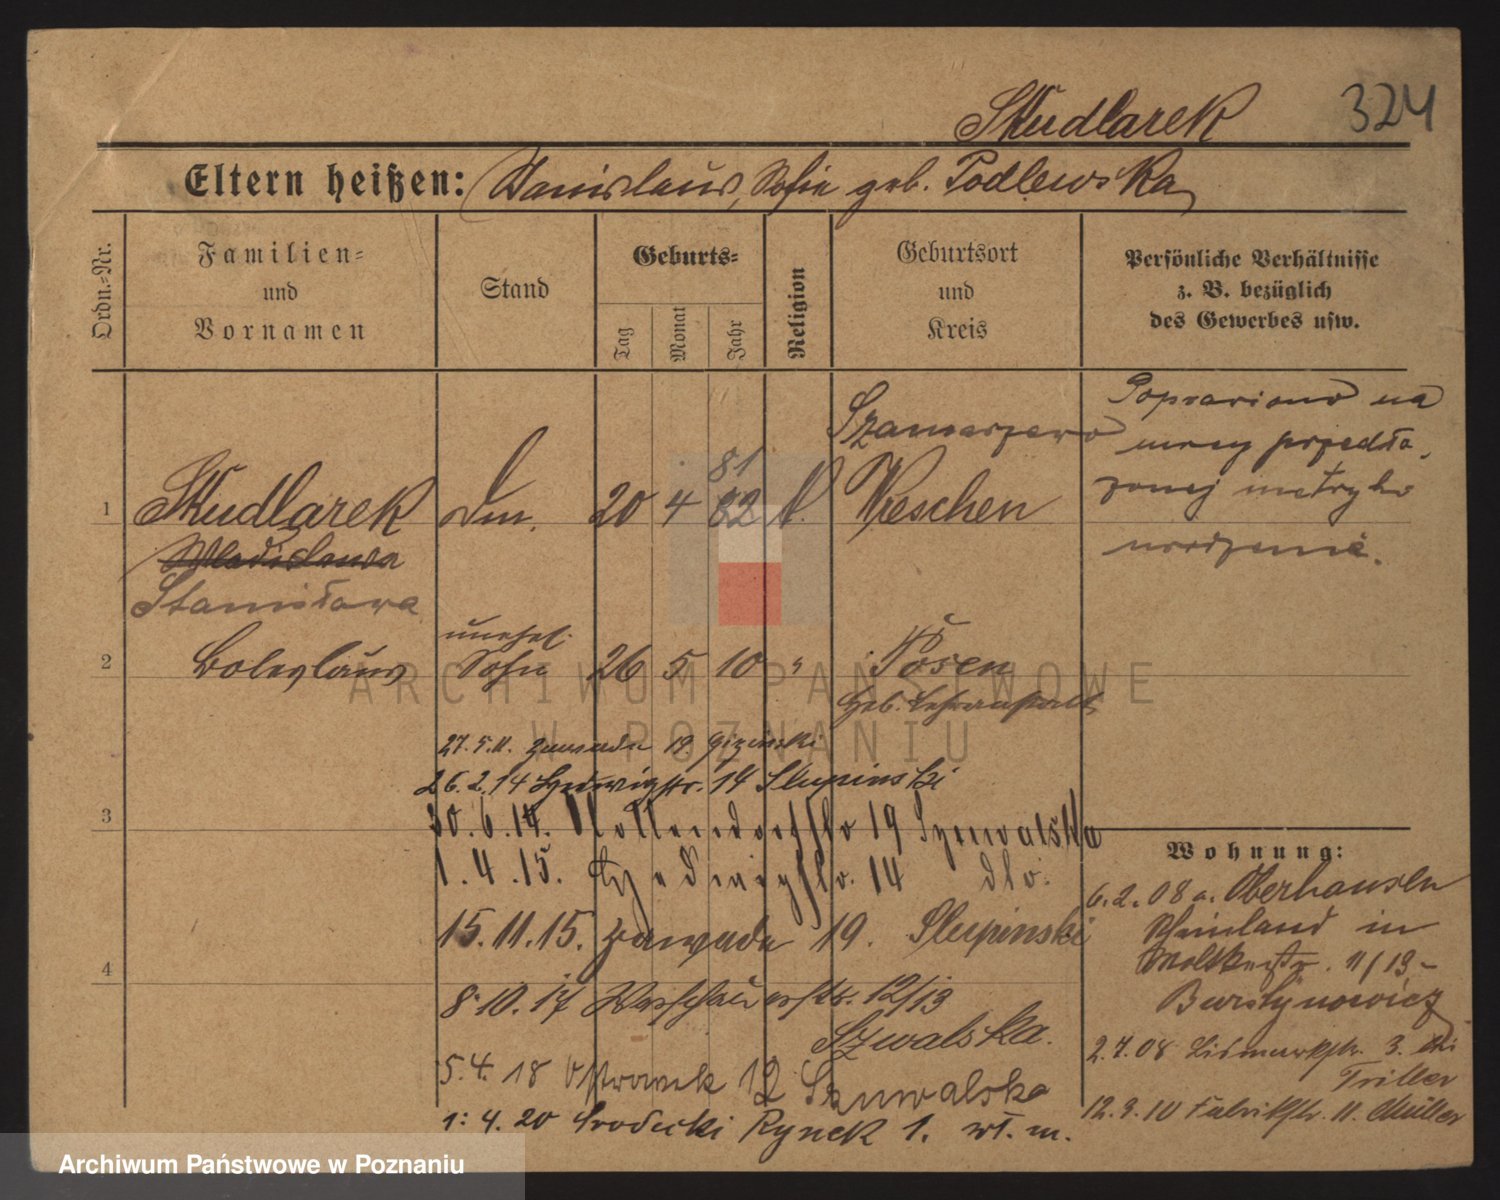 324
Skudlarek
Eltern heißen: Stanislaus, Sofie geb. Podlewska
Ordn.-Nr.
Familien-
und
Vornamen
Stand
Geburts-
Tag
Monat
Jahr
Religion
Geburtsort
und
Kreis
Persönliche Verhältnisse
z. B. bezüglich
des Gewerbes usw.
Poprawiono na
mocy przedło
żonej metryki
urodzenia.
81
1 Skudlarek 20 4 82 k. Wreschen
Wladislawa
Stanisława
unehel.
2 Boleslaus Sohn 26 5 10 " Posen
Heb. Lehranstalt
27.5.11. Zawade 19
26.2.14 Hedwigstr. 14 Slupinski
3
30.6.14. 19 Szuwalska
1.4.15. Hedwigstr. 14 dto.
15.11.15. Zawade 19. Slupinski
4
8.10.17 12/13
Szwalska.
5.4.18 Ostrowek 12 Szuwalska
1.4.20 Srodecki Rynek 1. wł. m.
Wohnung:
6.2.08 a. Oberhausen
Rheinland in
Moltkestr. 11/13-
Burstynowicz
2.7.08 Bismarckstr. 3. bei
Triller
12.9.10 Fabrikstr. 11. Müller
ARCHIWUM PAŃSTWOWE
W POZNANIU
Archiwum Państwowe w Poznaniu